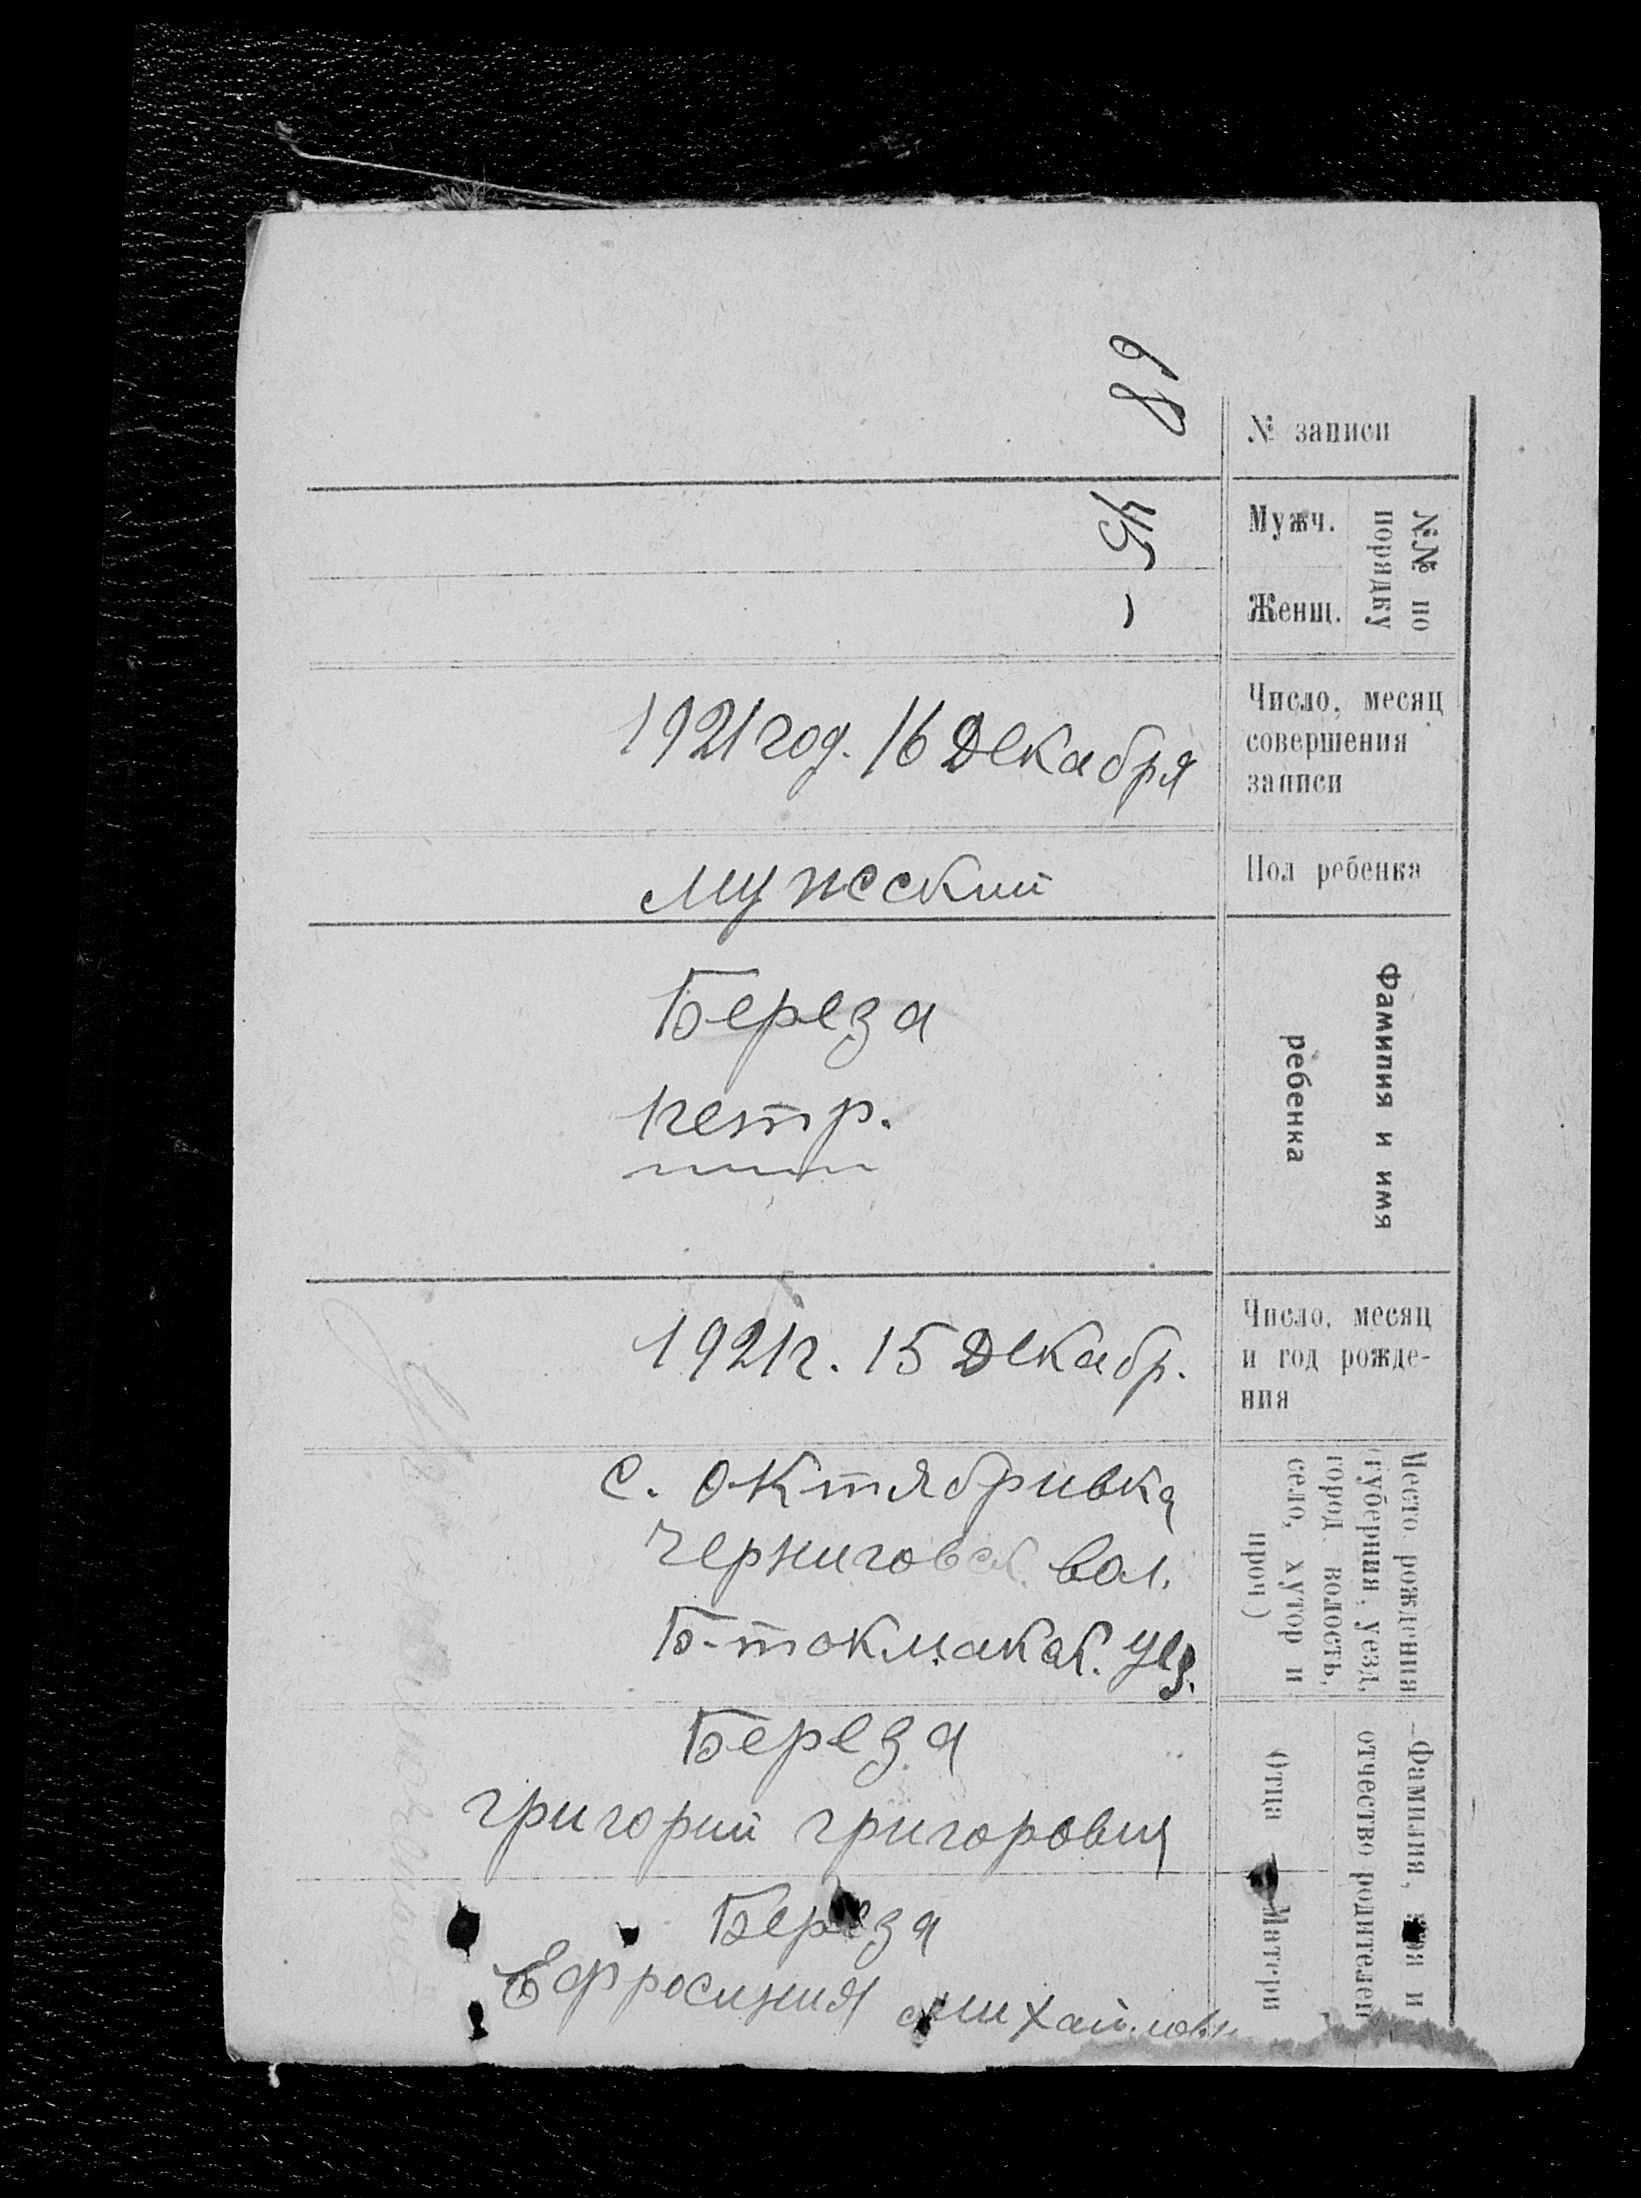 № записи
89
№№ по
порядку
Мужч.
45
Женщ.
-
Число, месяц
совершения
записи
1921 год. 16 Декабря
Пол ребенка
мужеский
Фамилия и имя
ребенка
Береза
Петр.
Число, месяц
и год рожде-
ния
1921 г. 15 Декабр.
Место рождения
(губерния, уезд,
город волость,
село, хутор и
проч)
с. Октябривка
Черниговск. вол.
Б-токмакск. уез.
Фамилия, имя и
отчество родителей
Отца
Береза
григорий григорович
Матери
Береза
Ефросиния михайловн